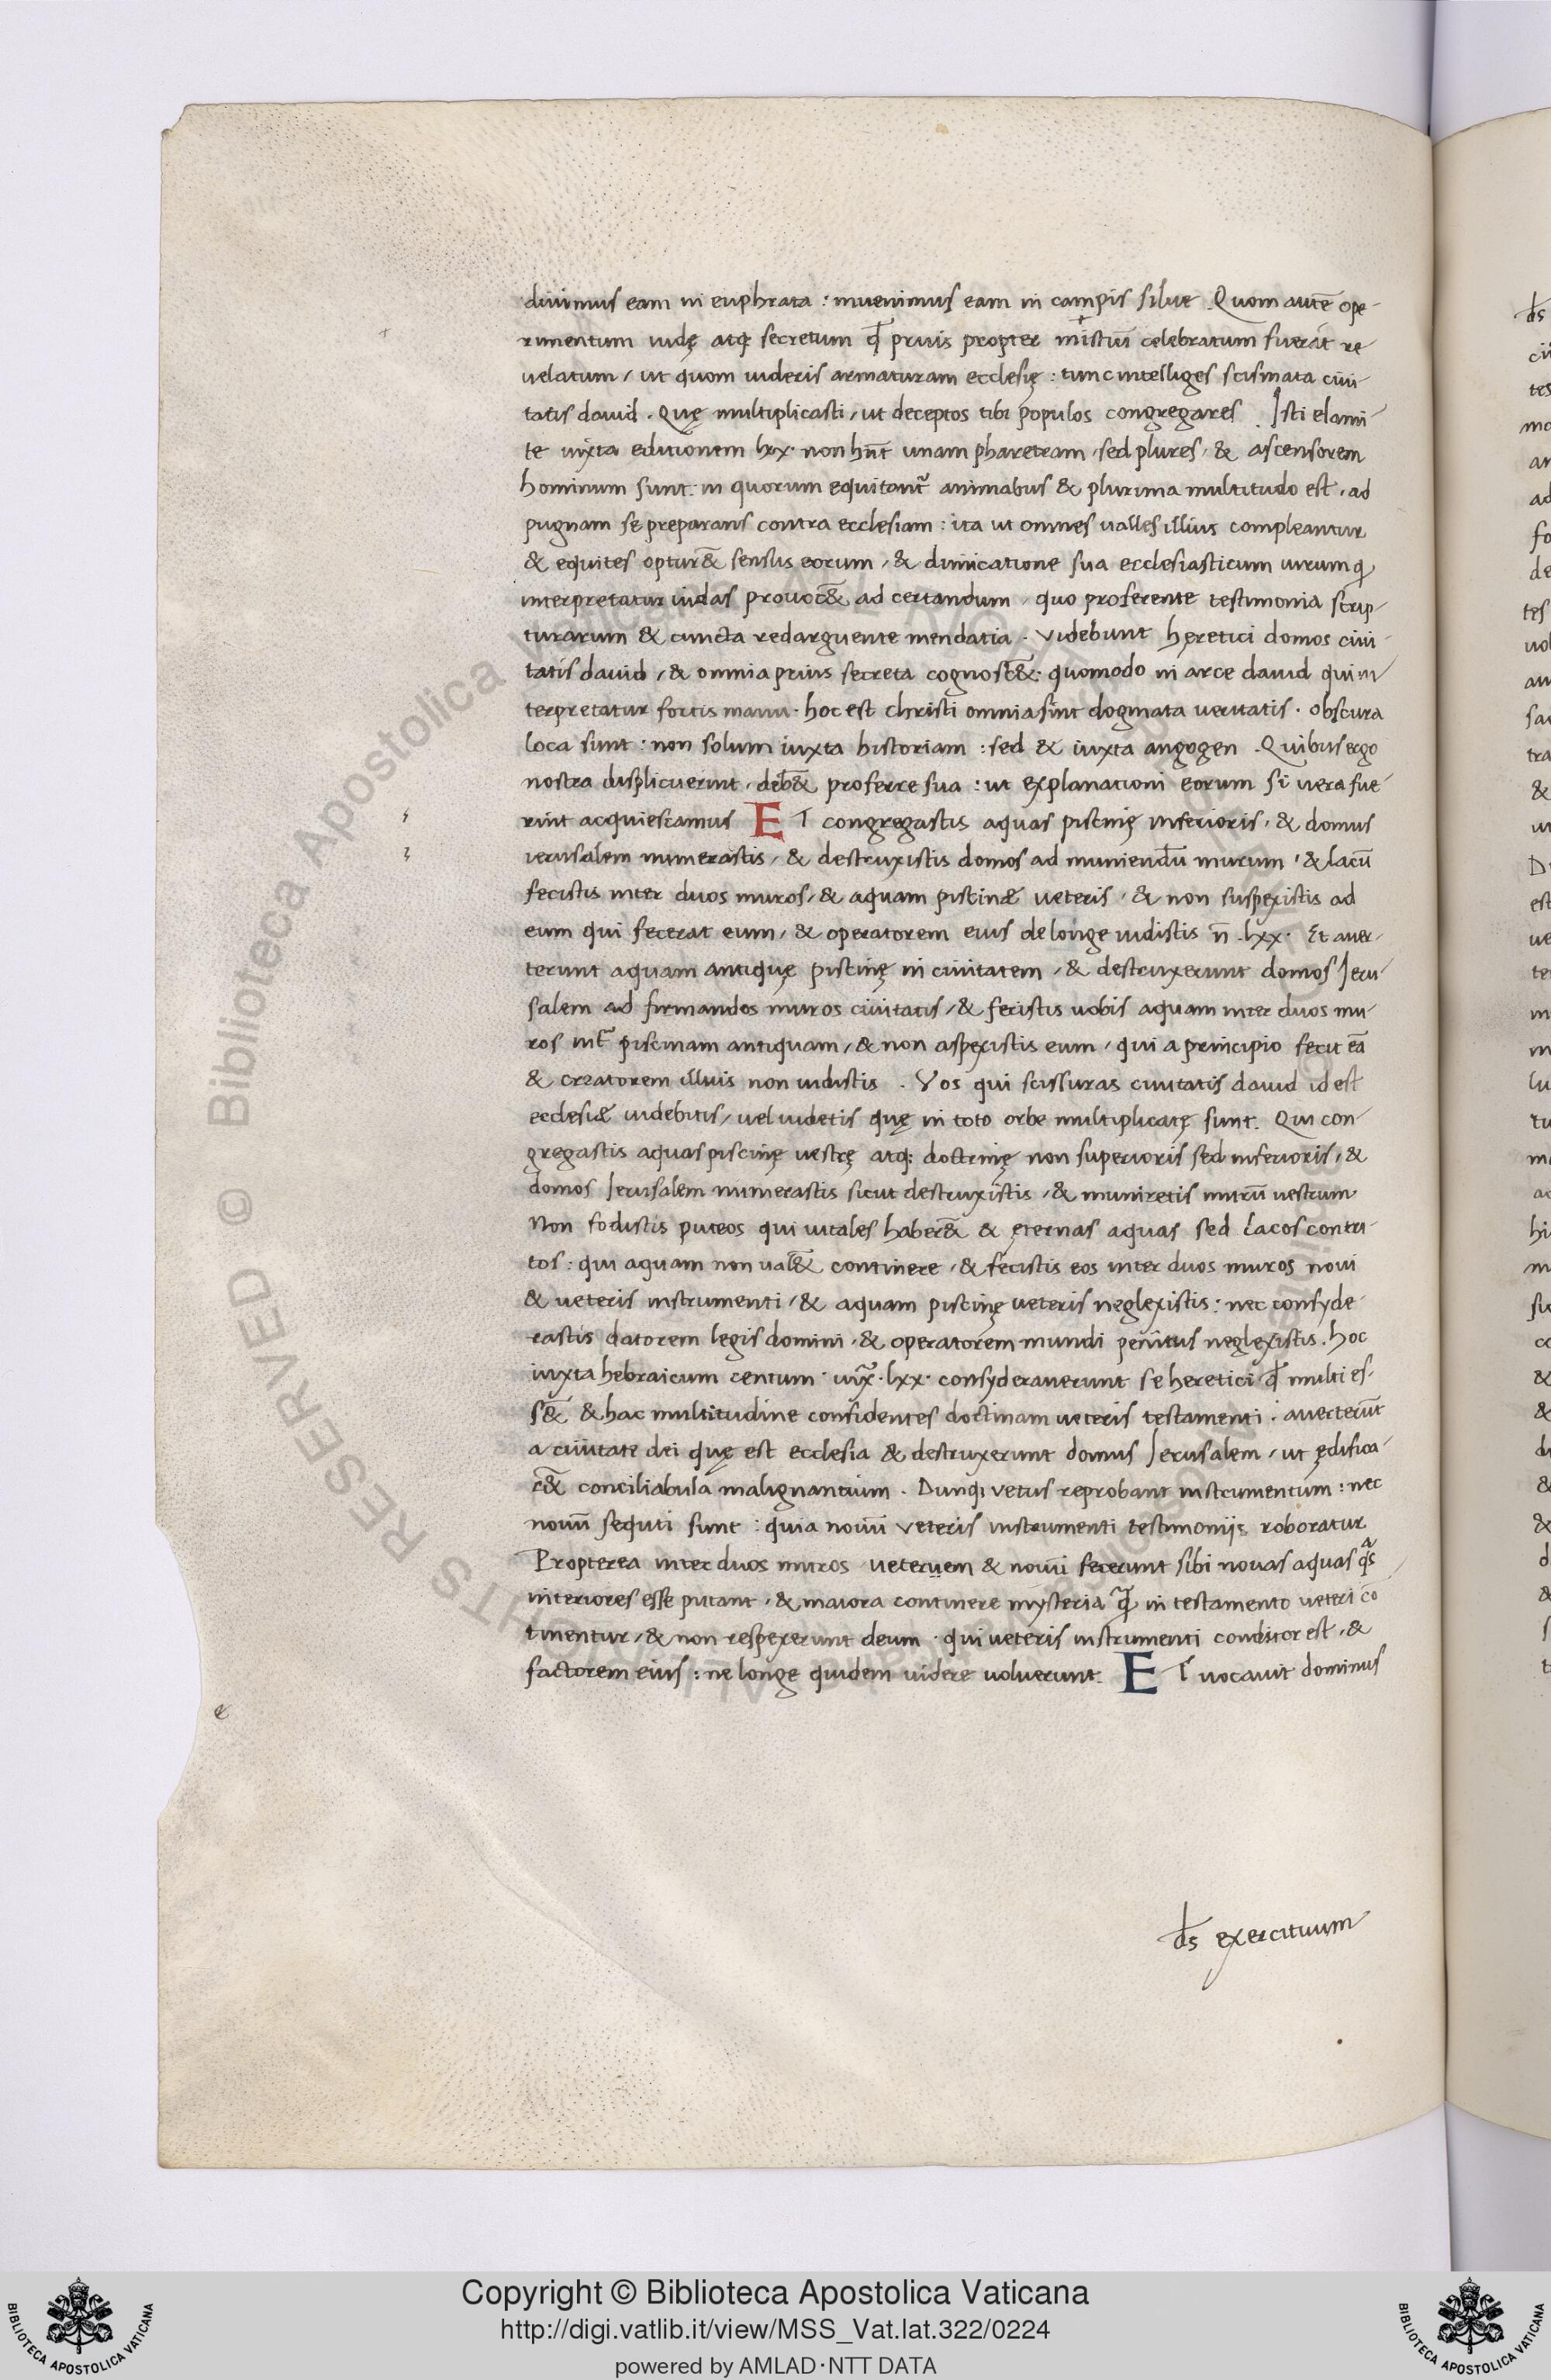 diuimus eam in euphrata : inuenimus eam in campis silue . Quom autē ope-
rimentum iudę atq; secretum qđ prius propter misteriū celebratum fuerat re-
uelatum / ut quom uideris armaturam ecclesię : tunc intelliges scismata ciui-
tatis dauid . Quę multiplicasti / ut deceptos tibi populos congregares . Isti elami-
te iuxta editionem lxx. non hn̄t unam pharetram / sed plures / & ascensorem
hominum sunt. in quorum equitant᷑ animabus & plurima multitudo est , ad
pugnam se preparans contra ecclesiam : ita ut omnes ualles illius compleantur
& equites optur&̄ sensus eorum / & dimicatione sua ecclesiasticum uirum q
interpretatur iudas prouoc&̄ ad certandum , quo proferente testimonia scrip-
turarum & cuncta redarguente mendatia . Videbunt hęretici domos ciui-
tatis dauid / & omnia prius secreta cognosc&̄. quomodo in arce dauid qui in-
terpretatur fortis manu . hoc est christi omnia sint dogmata ueritatis . obscura
loca sunt : non solum iuxta historiam : sed & iuxta angogen . Quibus ergo
nostra displicuerint , deb&̄ proferre sua : ut explanationi eorum si uera fue-
rint acquiescamus ET congregastis aquas piscinę inferioris , & domus
ierusalem numerastis / & destruxistis domos ad muniendū murum , & lacū
fecistis inter duos muros / & aquam piscinæ ueteris , & non suspexistis ad
eum qui fecerat eum / & operatorem eius de longe uidistis n̄ . lxx. Et auer-
terunt aquam antiquę piscinę in ciuitatem / & destruxerunt domos Jeru-
salem ad firmandos muros ciuitatis / & fecistis uobis aquam inter duos mu-
ros int᷑ piscinam antiquam / & non aspexistis eum , qui a principio fecit eā
& creatorem illius non uidistis . Vos qui scissuras ciuitatis dauid id est
ecclesiæ uidebitis / uel uidetis quę in toto orbe multiplicatę sunt . Qui con-
gregastis aquas piscinę uestrę atq; doctrinę non superioris sed inferioris , &
domos Jerusalem numerastis sicut destruxistis , & muniretis murū uestrum
Non fodistis puteos qui uitales haber&̄ & ęternas aquas sed lacos contri-
tos : qui aquam non ual&̄ continere , & fecistis eos inter duos muros noui
& ueteris instrumenti / & aquam piscinę ueteris neglexistis : nec consyde-
rastis datorem legis domini , & operatorem mundi penitus neglexistis . hoc
iuxta hebraicum centum . iux̄ . lxx. consyderauerunt se heretici qđ multi es-
s&̄ & hac multitudine confidentes doctinam ueteris testamenti . auerterūt
a ciuitate dei quę est ecclesia & destruxerunt domus Jerusalem / ut ędifica-
r&̄ conciliabula malignantium . Dumq; uetus reprobant instrumentum : nec
nouū sequti sunt : quia nouū veteris instrumenti testimonijs roboratur
Propterea inter duos muros ueteruem & nouū fecerunt sibi nouas aquas q̄s
interiores esse putant , & maiora continere mysteria q̄ in testamento ueteri cō
tinentur / & non respexerunt deum . qui ueteris instrumenti conditor est , &
factorem eius : ne longe quidem uidere uoluerunt . ET uocauit dominus
ds exercituum
Copyright © Biblioteca Apostolica Vaticana
http://digi.vatlib.it/view/MSS_Vat.lat.322/0224
powered by AMLAD·NTT DATA
BIBLIOTECA APOSTOLICA VATICANA
BIBLIOTECA APOSTOLICA VATICANA